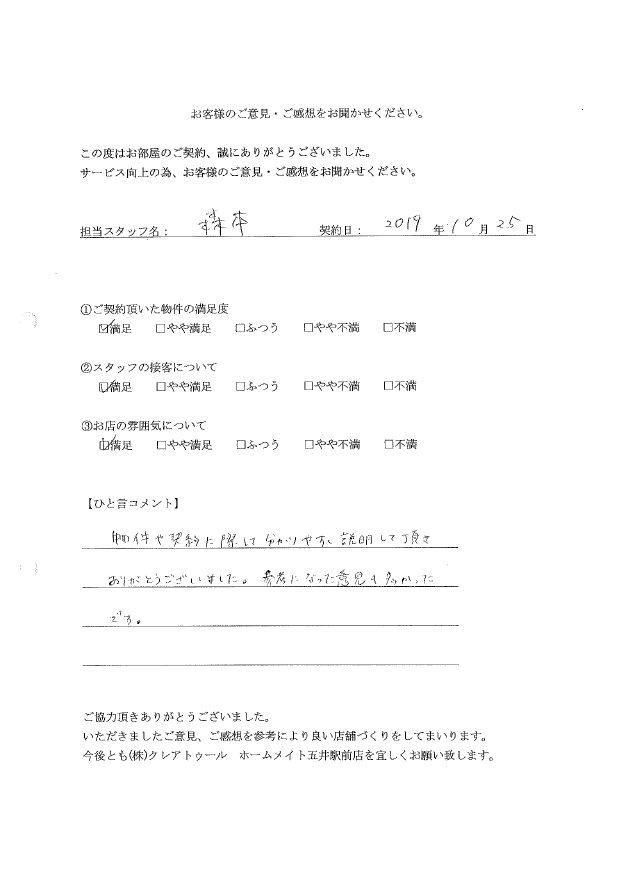 お客様のご意見・ご感想をお聞かせください。
この度はお部屋のご契約、誠にありがとうございました。
サービス向上の為、お客様のご意見・ご感想をお聞かせください。
担当スタッフ名： 森本 契約日： 2019 年 10 月 25 日
①ご契約頂いた物件の満足度
☑満足 □やや満足 □ふつう □やや不満 □不満
②スタッフの接客について
☑満足 □やや満足 □ふつう □やや不満 □不満
③お店の雰囲気について
☑満足 □やや満足 □ふつう □やや不満 □不満
【ひと言コメント】
物件や契約に際して分かりやすく説明して頂き
ありがとうございました。参考になった意見も多かった
です。
ご協力頂きありがとうございました。
いただきましたご意見、ご感想を参考により良い店舗づくりをしてまいります。
今後とも(株)クレアトゥール ホームメイト五井駅前店を宜しくお願い致します。